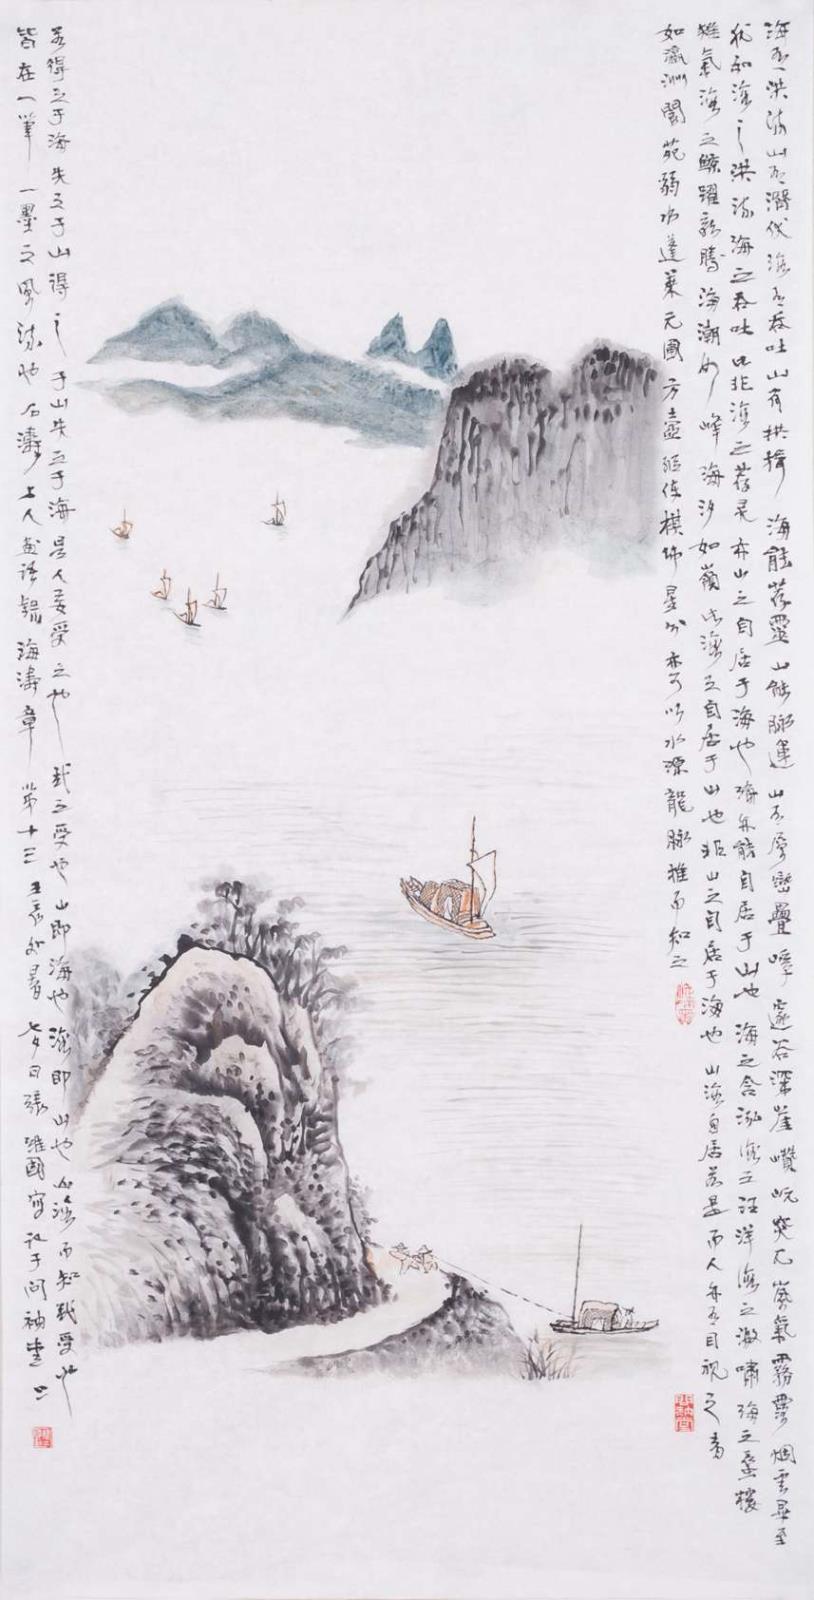 海有洪流山有潛伏海有吞吐山有拱揖海能荐靈山能脉運山有層巒疊嶂邃谷深崖巑岏突兀嵐氣霧露烟雲畢至
犹如海之洪流海之吞吐此非海之荐灵亦山之自居于海也海亦能自居于山也海之含泓海之汪洋海之激嘯海之蜃楼
雉氣海之鲸躍龍騰海潮如峰海汐如嶺此海之自居于山也非山之自居于海也山海自居若是而人亦有目视之者
如瀛洲閬苑弱水蓬莱元圃方壺縱使棋佈星分亦可以水源龍脉推而知之
若得之于海失之于山得之于山失之于海是人妄受之也我之受也山即海也海即山也山海而知我受也
皆在一筆一墨之風流也石濤上人画语録海濤章第十三壬辰处暑七夕日張維國寫记于問袖堂